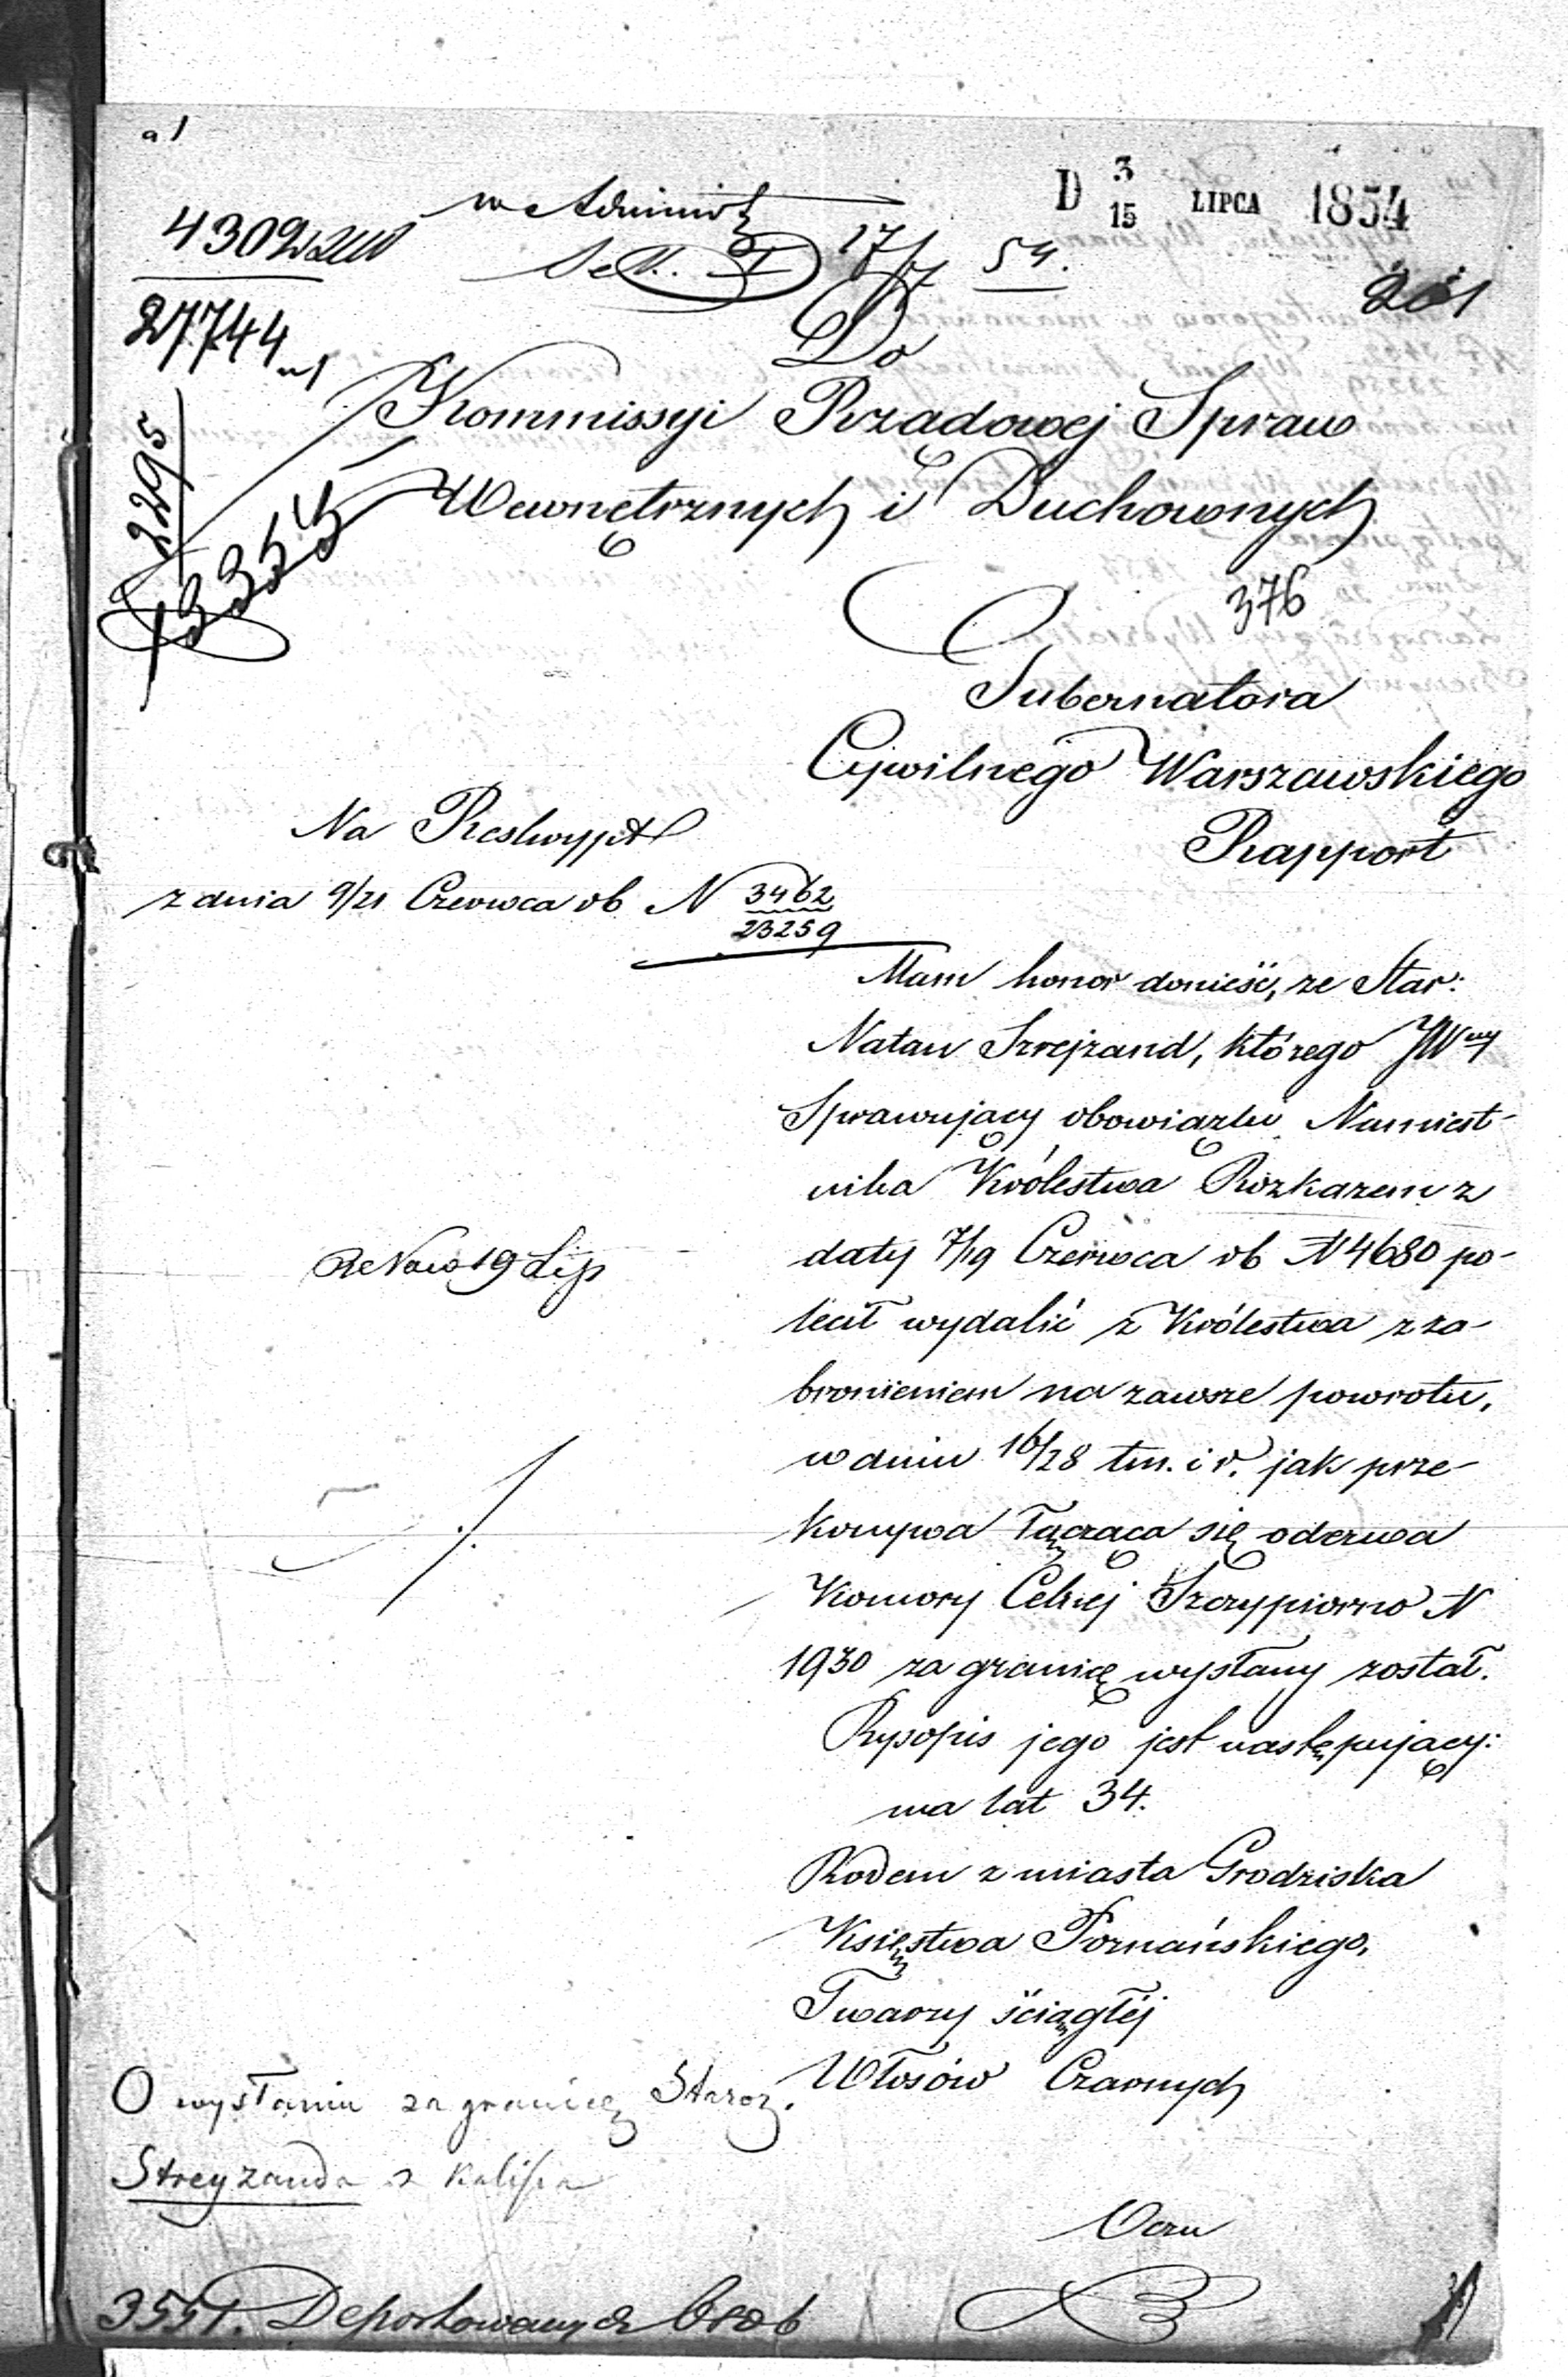 a1
D 3/15 LIPCA 1854
w Administ
4309
Sek. I 17/7 54.
27744
201
2295
13355
Do
Kommissyi Rządowej Spraw
Wewnętrznych i Duchownych
376
Gubernatora
Cywilnego Warszawskiego
Rapport
Na Reskrypt
z dnia 9/21 Czerwca ob N 3462/23259
Mam honor donieść, że Star:
Natan Szrejzand, którego JWny
Sprawujący obowiązki Namiest-
nika Królestwa Rozkazem z
daty 7/19 Czerwca ob N 4680 po-
lecił wydalić z Królestwa z za-
bronieniem na zawsze powrotu,
w dniu 16/28 tm. i r. jak prze-
konywa łącząca się odezwa
Komory Celnej Szczypiorno N
1930 za granicę wysłany został.
Rysopis jego jest następujący:
ma lat 34.
Rodem z miasta Grodziska
Księstwa Poznańskiego,
Twarzy ściągłéj
Włosów Czarnych
19 Lip
O wysłaniu za granicę Staroz.
Streyzanda z Kalisza
Oczu
3551. Deportowanych Osob